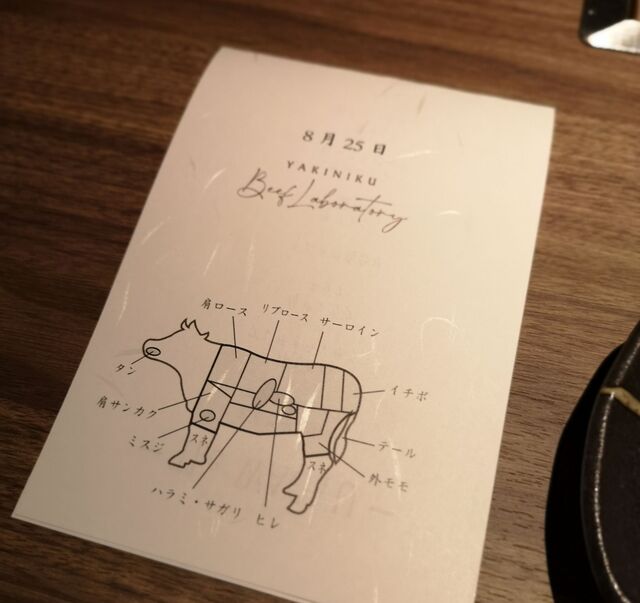 8月25日
YAKINIKU
Beef Laboratory
肩ロース
リブロース
サーロイン
タン
イチボ
肩サンカク
ミスジ
スネ
テール
スネ
外モモ
ハラミ・サガリ
ヒレ